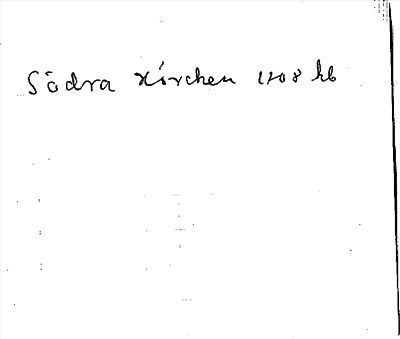 Södra Kirchen 1708 hb